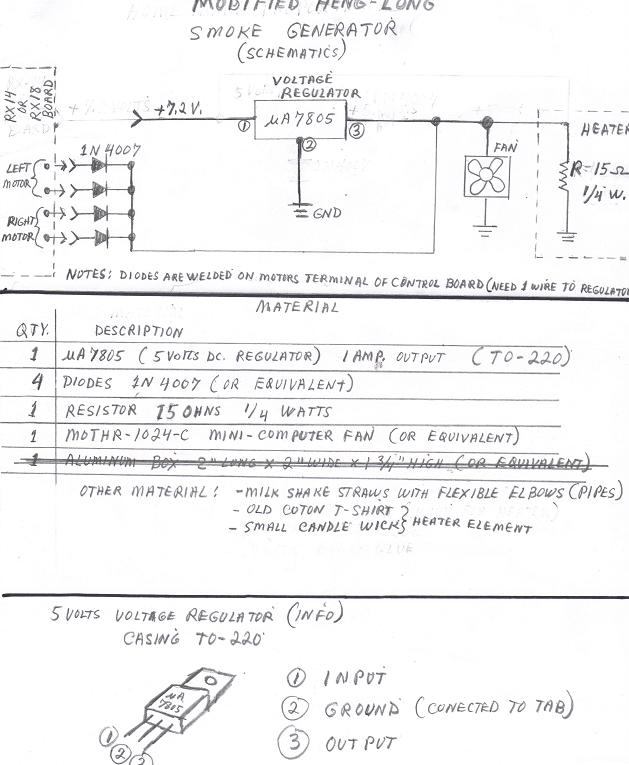 MODIFIED HENG-LONG
SMOKE GENERATOR
(SCHEMATICS)
RX14
OR
RX18
BOARD
+7.2 V.
VOLTAGE
REGULATOR
① µA7805 ③
②
GND
1N 4007
LEFT
MOTOR
RIGHT
MOTOR
FAN
HEATER
R=15Ω
1/4 W.
NOTES: DIODES ARE WELDED ON MOTORS TERMINAL OF CONTROL BOARD (NEED 1 WIRE TO REGULATOR
MATERIAL
QTY. DESCRIPTION
1 µA7805 (5 VOLTS DC. REGULATOR) 1 AMP. OUTPUT (TO-220)
4 DIODES 1N 4007 (OR EQUIVALENT)
1 RESISTOR 15 OHNS 1/4 WATTS
1 MOTHR-1024-C MINI-COMPUTER FAN (OR EQUIVALENT)
1 ALUMINUM BOX 2" LONG X 2" WIDE X 1 3/4" HIGH (OR EQUIVALENT)
OTHER MATERIAL: - MILK SHAKE STRAWS WITH FLEXIBLE ELBOWS (PIPES)
- OLD COTON T-SHIRT
- SMALL CANDLE WICK } HEATER ELEMENT
5 VOLTS VOLTAGE REGULATOR (INFO)
CASING TO-220
µA
7805
① INPUT
② GROUND (CONECTED TO TAB)
③ OUTPUT
①
②
③